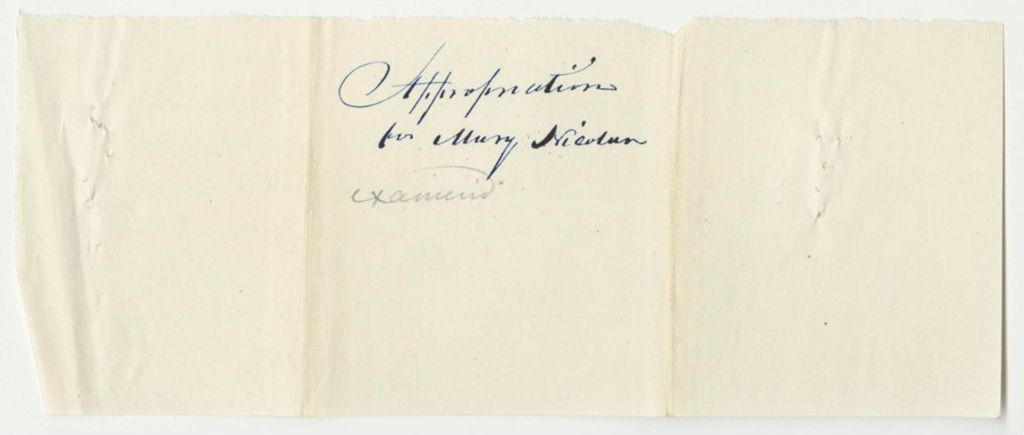 Appropriation
for Mary Nicolar
examend